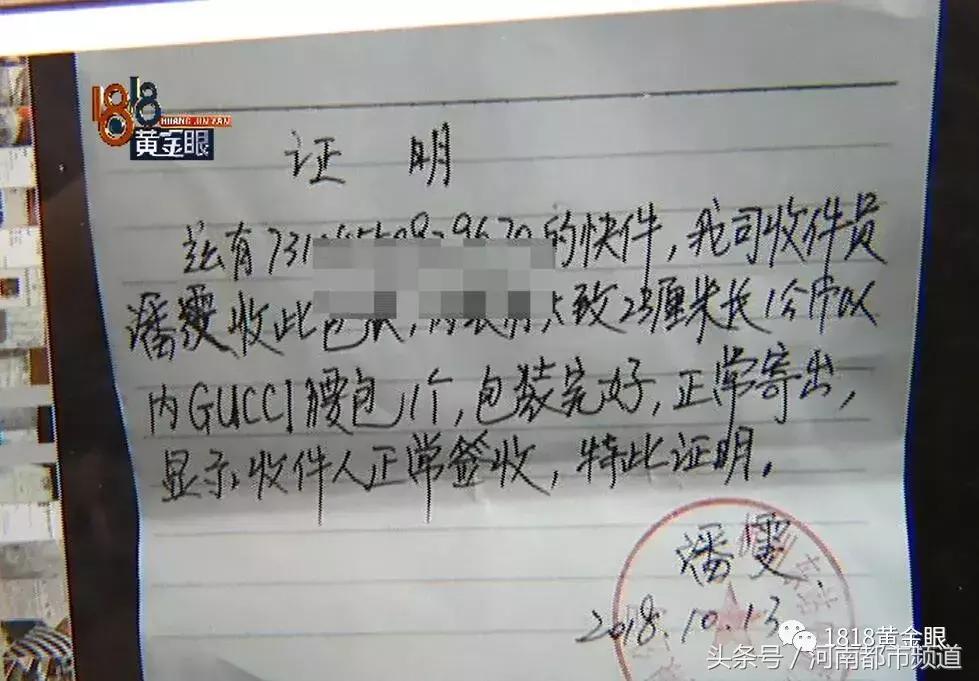 1818
HUANG JIN YAN
黄金眼
证 明
兹有731 9670的快件,我司收件员
潘雯收此 致23厘米长1个
内GUCCI腰包1个,包装完好,正常寄出,
显示收件人正常签收,特此证明。
潘雯
2018.10.13
1818黄金眼
头条号/河南都市频道